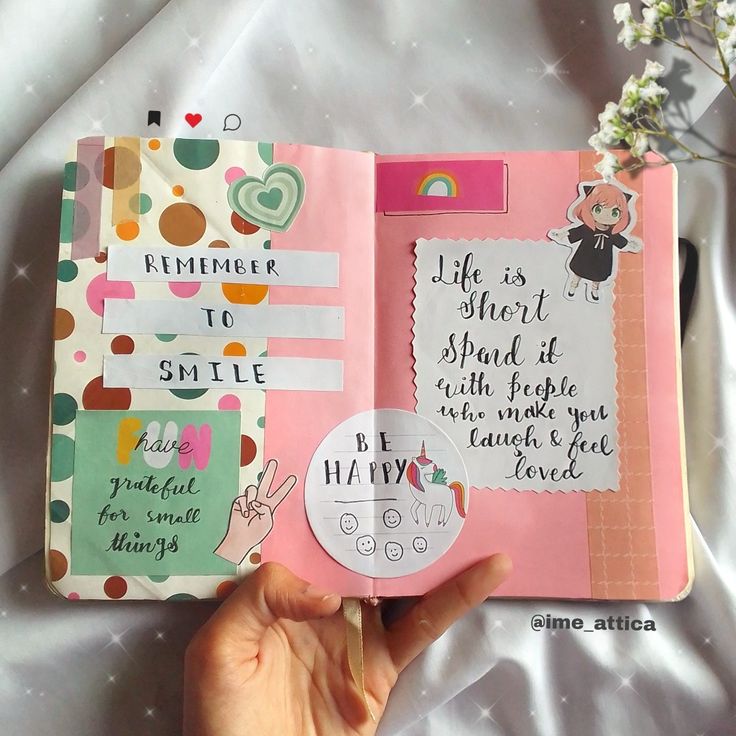 REMEMBER
TO
SMILE
have FUN
grateful
for small
things
BE
HAPPY
Life is
Short
Spend it
with people
who make you
laugh & feel
loved
@ime_attica